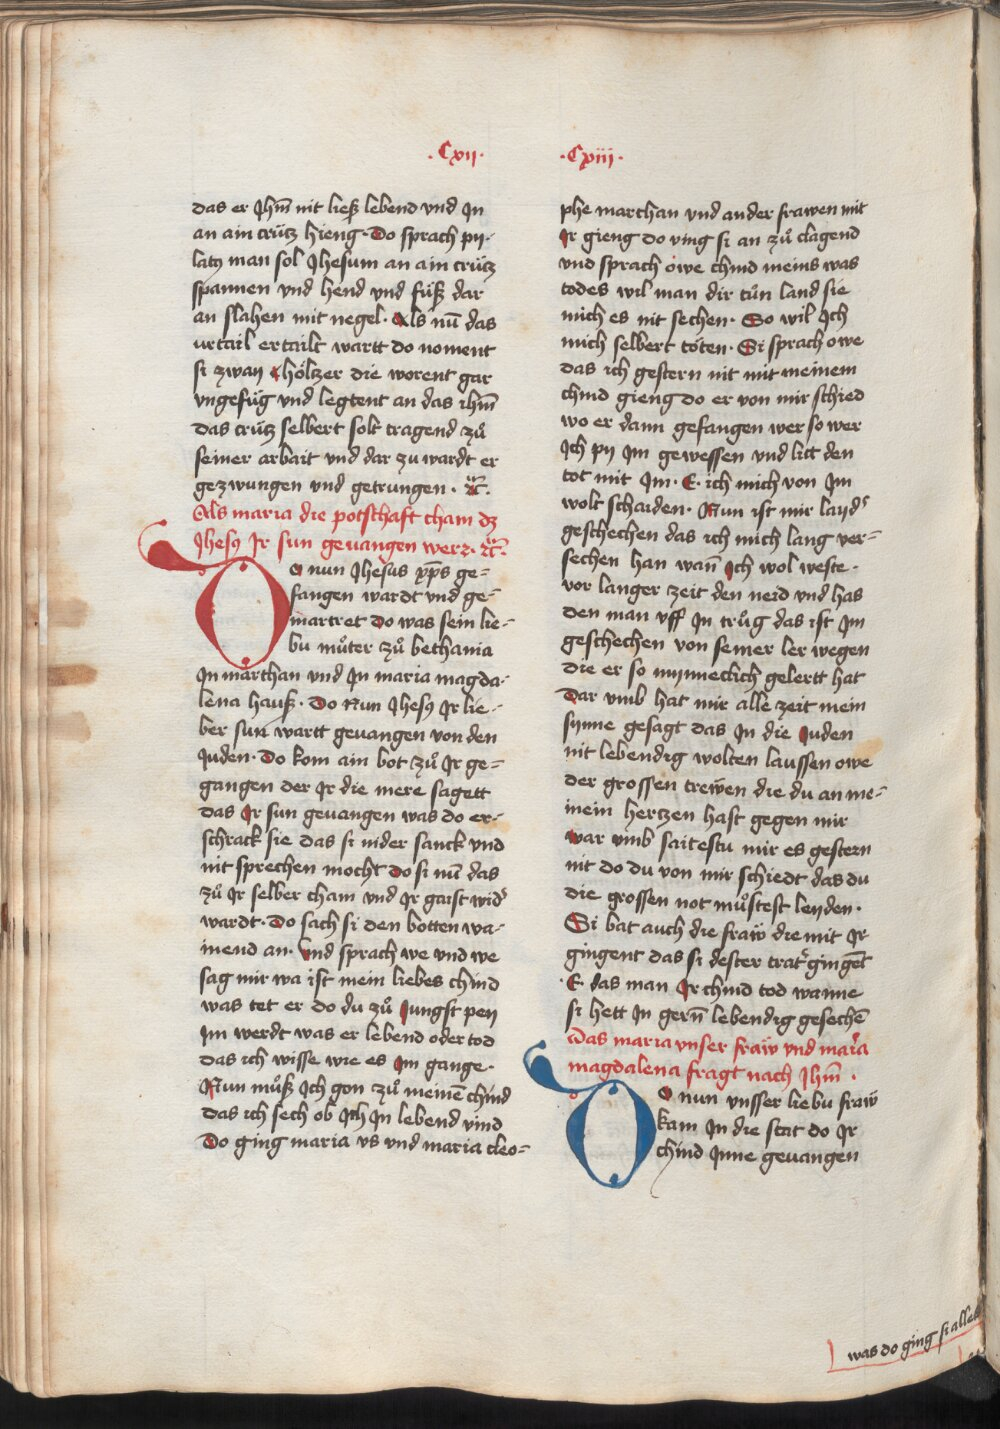 ·Cxij·
das er Jhm̄ nit ließ lebend vnd Jn
an ain crütz hieng· Do sprach py-
latꝯ man sol Jhesum an ain crütz
spannen vnd hend vnd füß dar
an slahen mit negel· Als nū das
vrtail ertailt wartt do noment
si zway höltzer die worent gar
vngefüg vnd legtent an das ihm̄
das crütz selbert solt tragend zů
seiner arbait vnd dar zu wardt er
gezwungen vnd getrungen·
Als maria die potschaft cham dz
Jhesꝯ Jr sun geuangen werz·
Do nun Jhesus xp̄s ge-
fangen wardt vnd ge-
martret do was sein lie-
bu můter zů bethania
Jn marthan vnd Jn maria magda-
lena hauß· Do Nun Jhesꝯ Jr lie-
ber sun wartt geuangen von den
Juden· Do kom ain bot zů Jr ge-
gangen der Jr die mere sagett
das Jr sun geuangen was do er-
schrack sie das si nider sanck vnd
nit sprechen mocht do si nū das
zů Jr selber cham vnd Jr gaist wid᷑
wardt· Do sach si den botten wa-
inend an· vnd sprach we vnd we
sag mir wa ist mein liebes chind
was tet er do du zů Jungst pey
Jm werdt was er lebend oder tod
das ich wisse wie es Jm gange·
Nun můß Jch gon zů meinē chind
das ich sech ob Jch Jn lebend vind
Do ging maria vs vnd maria cleo-
·Cxiii·
phe marthan vnd ander frawen mit
Jr gieng do ving si an zů clagend
vnd sprach owe chind meins was
todes wil man dir tůn land sie
mich es nit sechen· So wil Jch
mich selbert töten· Si sprach owe
das ich gestern nit mit meinem
chind gieng do er von mir schied
wo er dann gefangen wer so wer
Jch py Jm gewessen vnd litt den
tot mit Jm· E· ich mich von Jm
wolt schaiden· Nun ist mir layd᷑
geschechen das ich mich lang ver-
sechen han wañ Jch wol weste·
vor langer zeit den neid vnd has
den man vff Jn trůg das ist Jm
geschechen von seiner ler wegen
die er so mynneclich gelertt hat
Dar vmb hat mir alle zeit mein
synne gesagt das Jn die Juden
nit lebendig wolten laussen owe
der grossen trewen die du an me-
inein hertzen hast gegen mir
war vmb saitestu mir es gestern
nit do du von mir schiedt das du
die grossen not můstest leyden·
Si bat auch die fraw die mit Jr
gingent das si dester trat᷑ gingēt
·E· das man Jr chind tod wanne
si hett Jn gern̄ lebendig gesechē
Das maria vnser fraw vnd maria
magdalena fragt nach Jhm̄·
Do nun vnsser liebu fraw
kam Jn die stat do Jr
chind Jnne geuangen
was do ging si alle